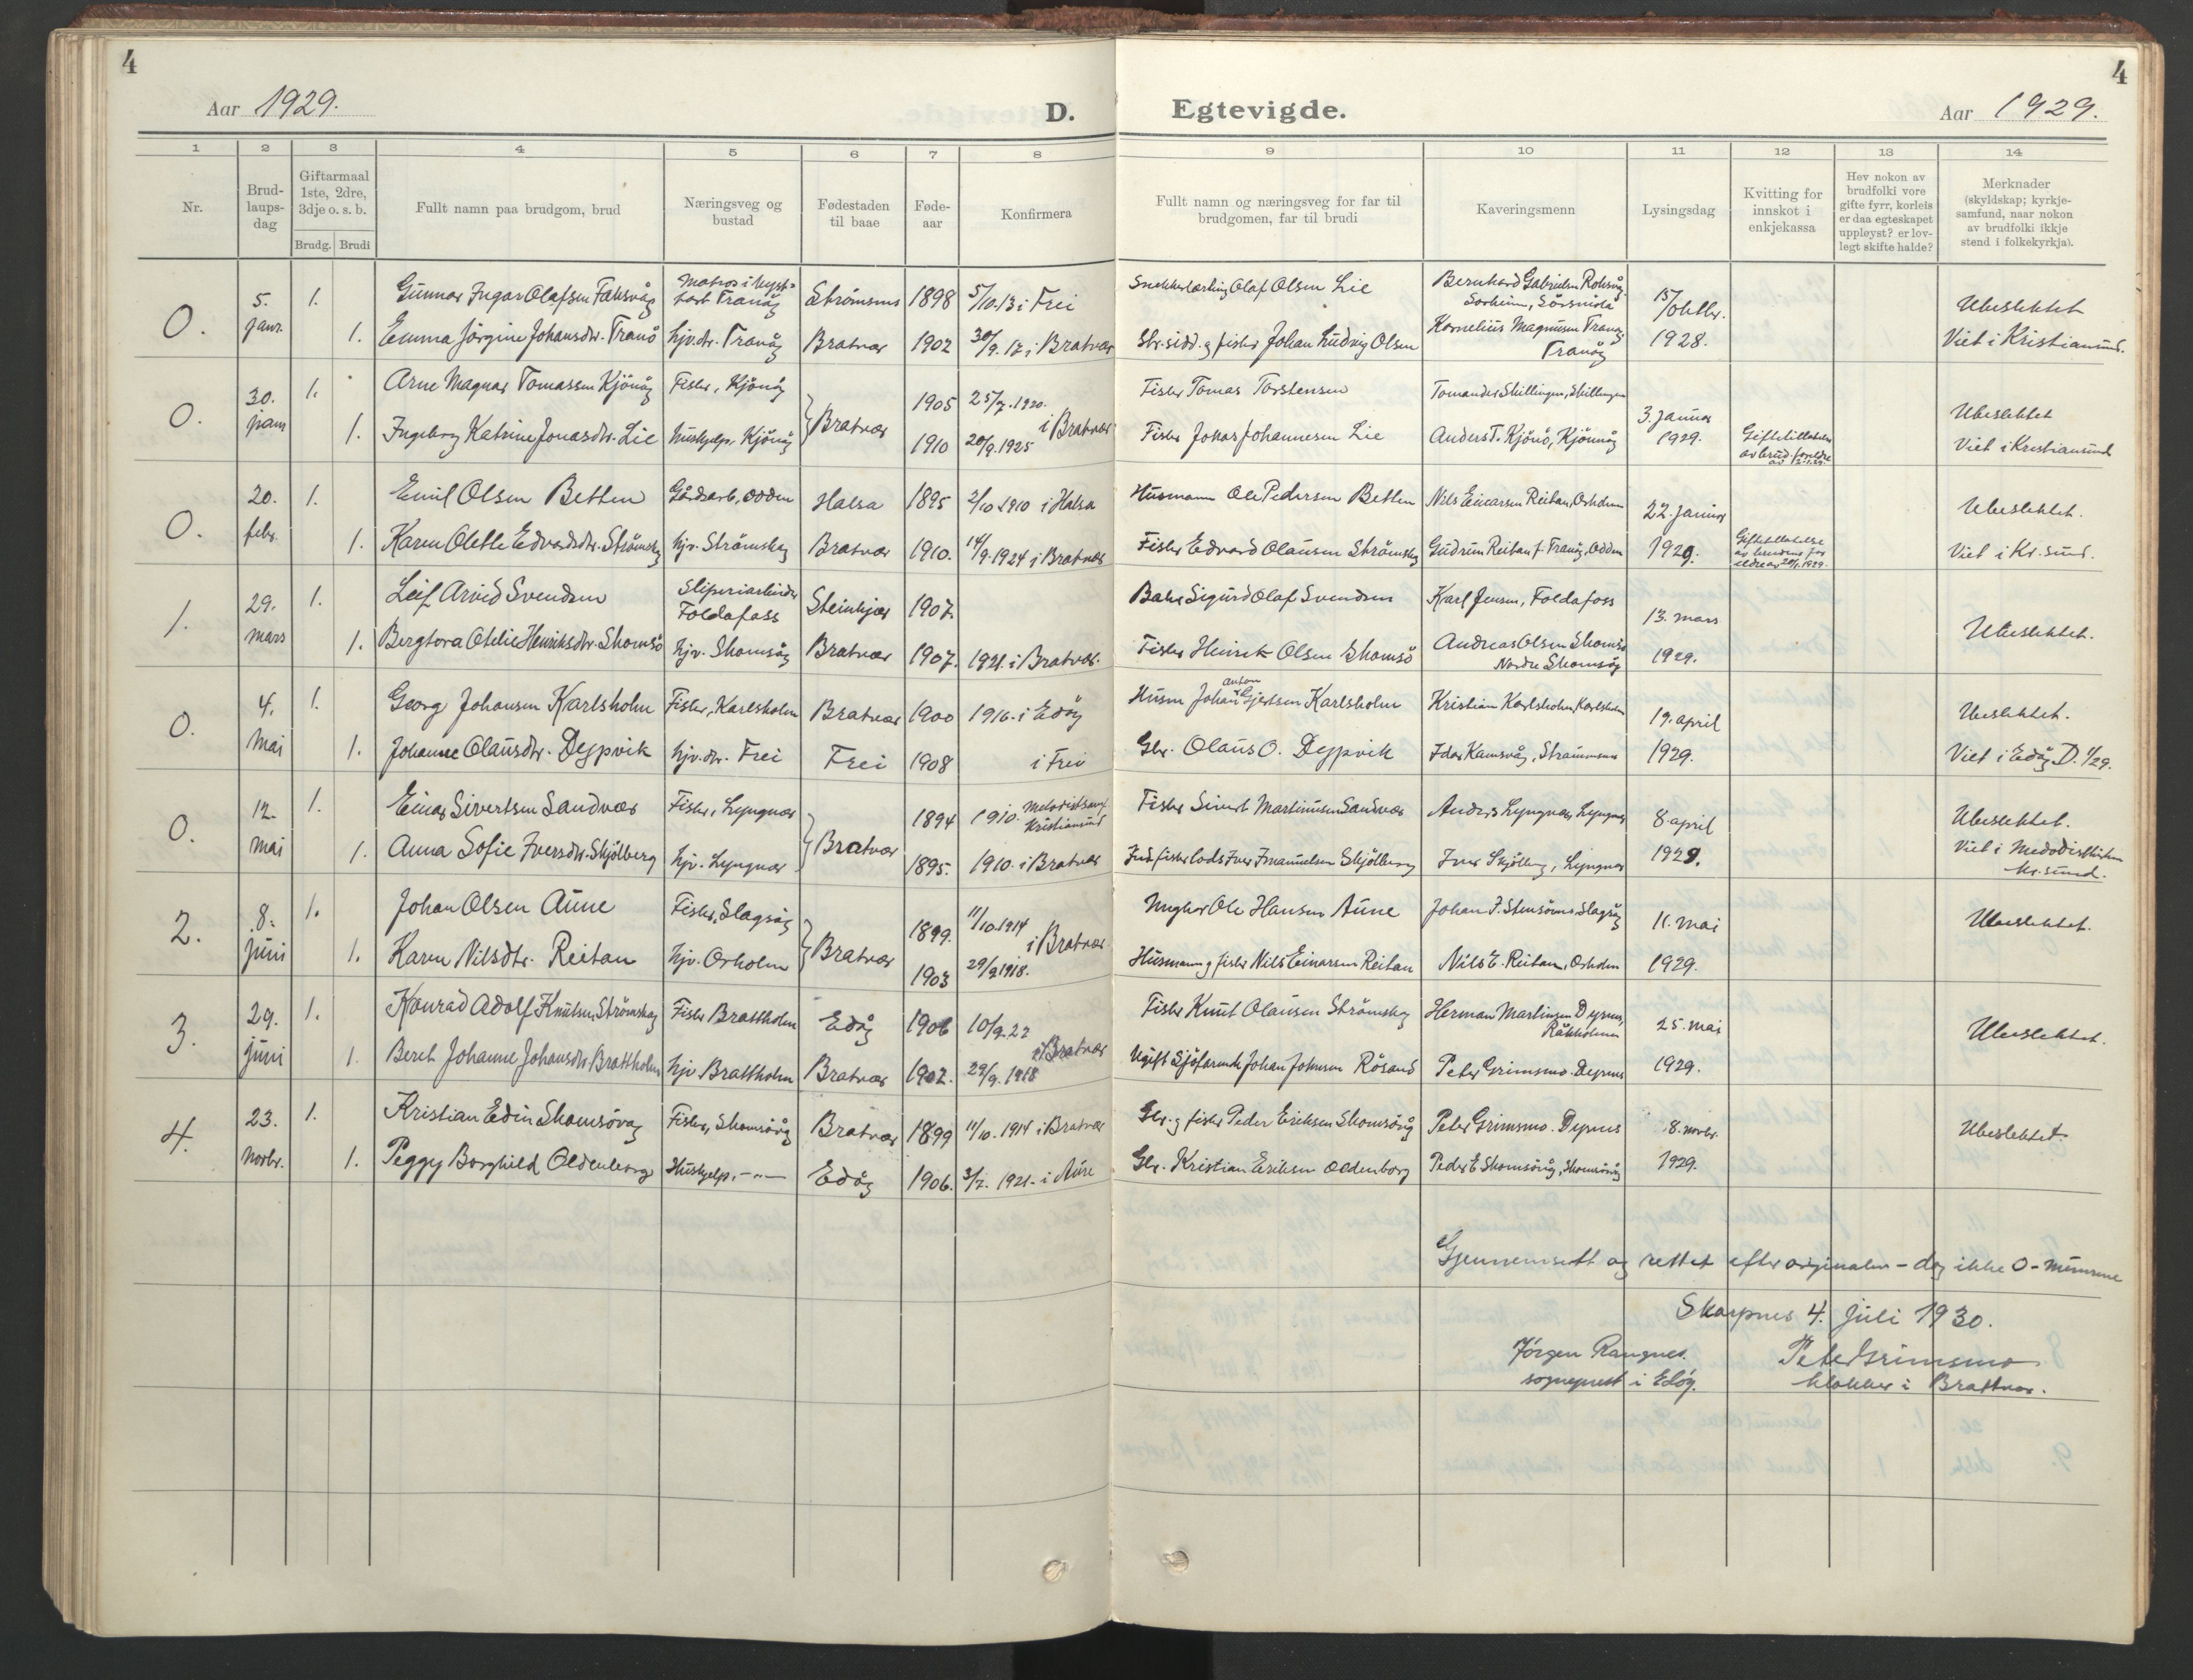 4
4
Aar 1929.
D.
Egtevigde.
Aar 1929.
1 2 3 4 5 6 7 8 9 10 11 12 13 14
Nr.
Brud-
laups-
dag
Giftarmaal
1ste, 2dre,
3dje o. s. b.
Brudg. Brudi
Fullt namn paa brudgom, brud
Næringsveg og
bustad
Fødestaden
til baae
Føde-
aar
Konfirmera
Fullt namn og næringsveg for far til
brudgomen, far til brudi
Kaveringsmenn
Lysingsdag
Kvitting for
innskot i
enkjekassa
Hev nokon av
brudfolki vore
gifte fyrr, korleis
er daa egteskapet
uppløyst? er lov-
legt skifte halde?
Merknader
(skyldskap; kyrkje-
samfund, naar nokon
av brudfolki ikkje
stend i folkekyrkja).
O. 5. janr. 1. Gunnar Ingar Olafsen Faksvåg Matros i kyst-
fart Tranåy Strömsnes 1898 5/10.13 i Frei Snekkerlærling Olaf Olsen Lie Bernhard Gabrielsen
15/oktbr. Ubeslektet
1. Emma Jörgine Johansdtr. Tranö hjv.dtr. Tranåy Bratvær 1902 30/9.17 i Bratvær Gbr.sidd. og fisker Johan Ludvig Olsen Kornelius Magnussen
Tranåy 1928. Viet i Kristiansund.
O. 30. jam 1. Arne Magnar Tomassen Kjönöy Fisker, Kjönöy Bratvær 1905 25/7.1920. Fisker Tomas Torstensen Tomander Skillingen, Skillingen 3. januar Ubeslektet
1. Ingeborg Katrine Jonasdtr. Lie Hushjelp. Kjönöy 1910 20/9.1925 i Bratvær Fisker Jonas Johannesen Lie Anders T. Kjönö, Kjönnöy 1929. Giftetillatelse
av brud. foreldre
av 2-1.29. Viet i Kristiansund
O. 20. febr. 1. Emil Olsen Betten Gårdsarb., Odden Halsa 1895 2/10 1910 i Halsa Husmann Ole Pedersen Betten Nils Einarsen Reitan, Orholmen 22. januar Ubeslektet.
1. Karen Olette Edvardsdtr. Strömsky hjv. Strömsky Bratvær 1910. 14/9.1924 i Bratvær Fisker Edvard Olausen Strömsky Gudrun Reitan f. Tranöy, Odden 1929. Giftetillatelse
av brudens for
eldre av 20/1.1929. Viet i Kr. sund.
1. 29. mars 1. Leif Arvid Svendsen Sliperiarbeider
Foldafoss Steinkjær 1907. Baker Sigurd Olaf Svendsen Karl Jensen, Foldafoss 13. mars
1. Bergtora Otelie Henriksdtr. Skomsö hjv. Skomsöy Bratvær 1907. 1921. i Bratvær. Fisker Heinrik Olsen Skomsö Andreas Olsen Skomsö
Nordre Skomsöy 1929. Ubeslektet.
O. 4. mai 1. Georg Johansen Karlsholm Fisker, Karlsholm Bratvær 1900 1916. i Edöy Husm Johan Anton Gjertsen Karlsholm Kristian Karlsholm, Karlsholm 19. april Ubeslektet.
1. Johanne Olausdtr. Dypvik hjv. dtr. Frei Frei 1908 i Frei Gbr. Olaus O. Dypvik Idar Ramsvåg, Straumsnes 1929. Viet i Edöy D. 1/29.
O. 12. mai 1. Einar Sivertsen Sandvær Fisker, Lyngvær Bratvær 1894 1910. Metodistsamf.
Kristiansund Fisker Sivert Martinussen Sandvær Anders Lyngvær, Lyngvær 8. april Ubeslektet.
1. Anna Sofie Iversdtr. Skjölberg hjv. Lyngvær 1895. 1910. i Bratvær Ind.fisker lods Iver Imanuelsen Skjölberg Iver Skjölberg, Lyngvær 1929. Viet i Medodistkirken
Kr.sund.
2. 8. juni 1. Johan Olsen Aune Fisker, Slagsöy Bratvær 1899. 11/10.1914 Ole Hansen Aune Johan J. Stensönes Slagsöy 11. mai Ubeslektet.
1. Karen Nilsdtr. Reitan hjv. Orholm 1903 29/9 1918. i Bratvær Husmann og fisker Nils Einarsen Reitan Nils E. Reitan, Orholm 1929.
3. 29. juni 1. Konrad Adolf Knutsen Strömsky Fisker Brattholm Edöy 1906 10/9.22 Fisker Knut Olausen Strömsky Herman Martinsen Dyrnes,
Råkholmen 25. mai Ubeslektet.
1. Beret Johanne Johansdtr. Brattholm hjv Brattholm Bratvær 1902. 29/9. 1918 i Bratvær Ugift Sjöfarende Johan Johnsen Rösand Peter Grimsmo. Dyrnes 1929.
4. 23. novbr. 1. Kristian Edin Skomsövåg Fisker, Skomsövåg Bratvær 1899 11/10. 1914 i Bratvær Gbr. og fisker Peder Eriksen Skomsövåg Peter Grimsmo. Dyrnes 8. novbr. Ubeslektet.
1. Peggy Borghild Oldenborg Hushjelp. -"- Edöy 1906. 3/7. 1921. i Aure Gbr. Kristian Eriksen Oldenborg Peder E Skomsövåg, Skomsövåg 1929.
Gjennemsett og rettet efter originalen - dog ikke O-numrene
Skarpnes 4. juli 1930.
Jörgen Rangnes. Peter Grimsmo
sogneprest i Edöy. klokker i Brattvær.